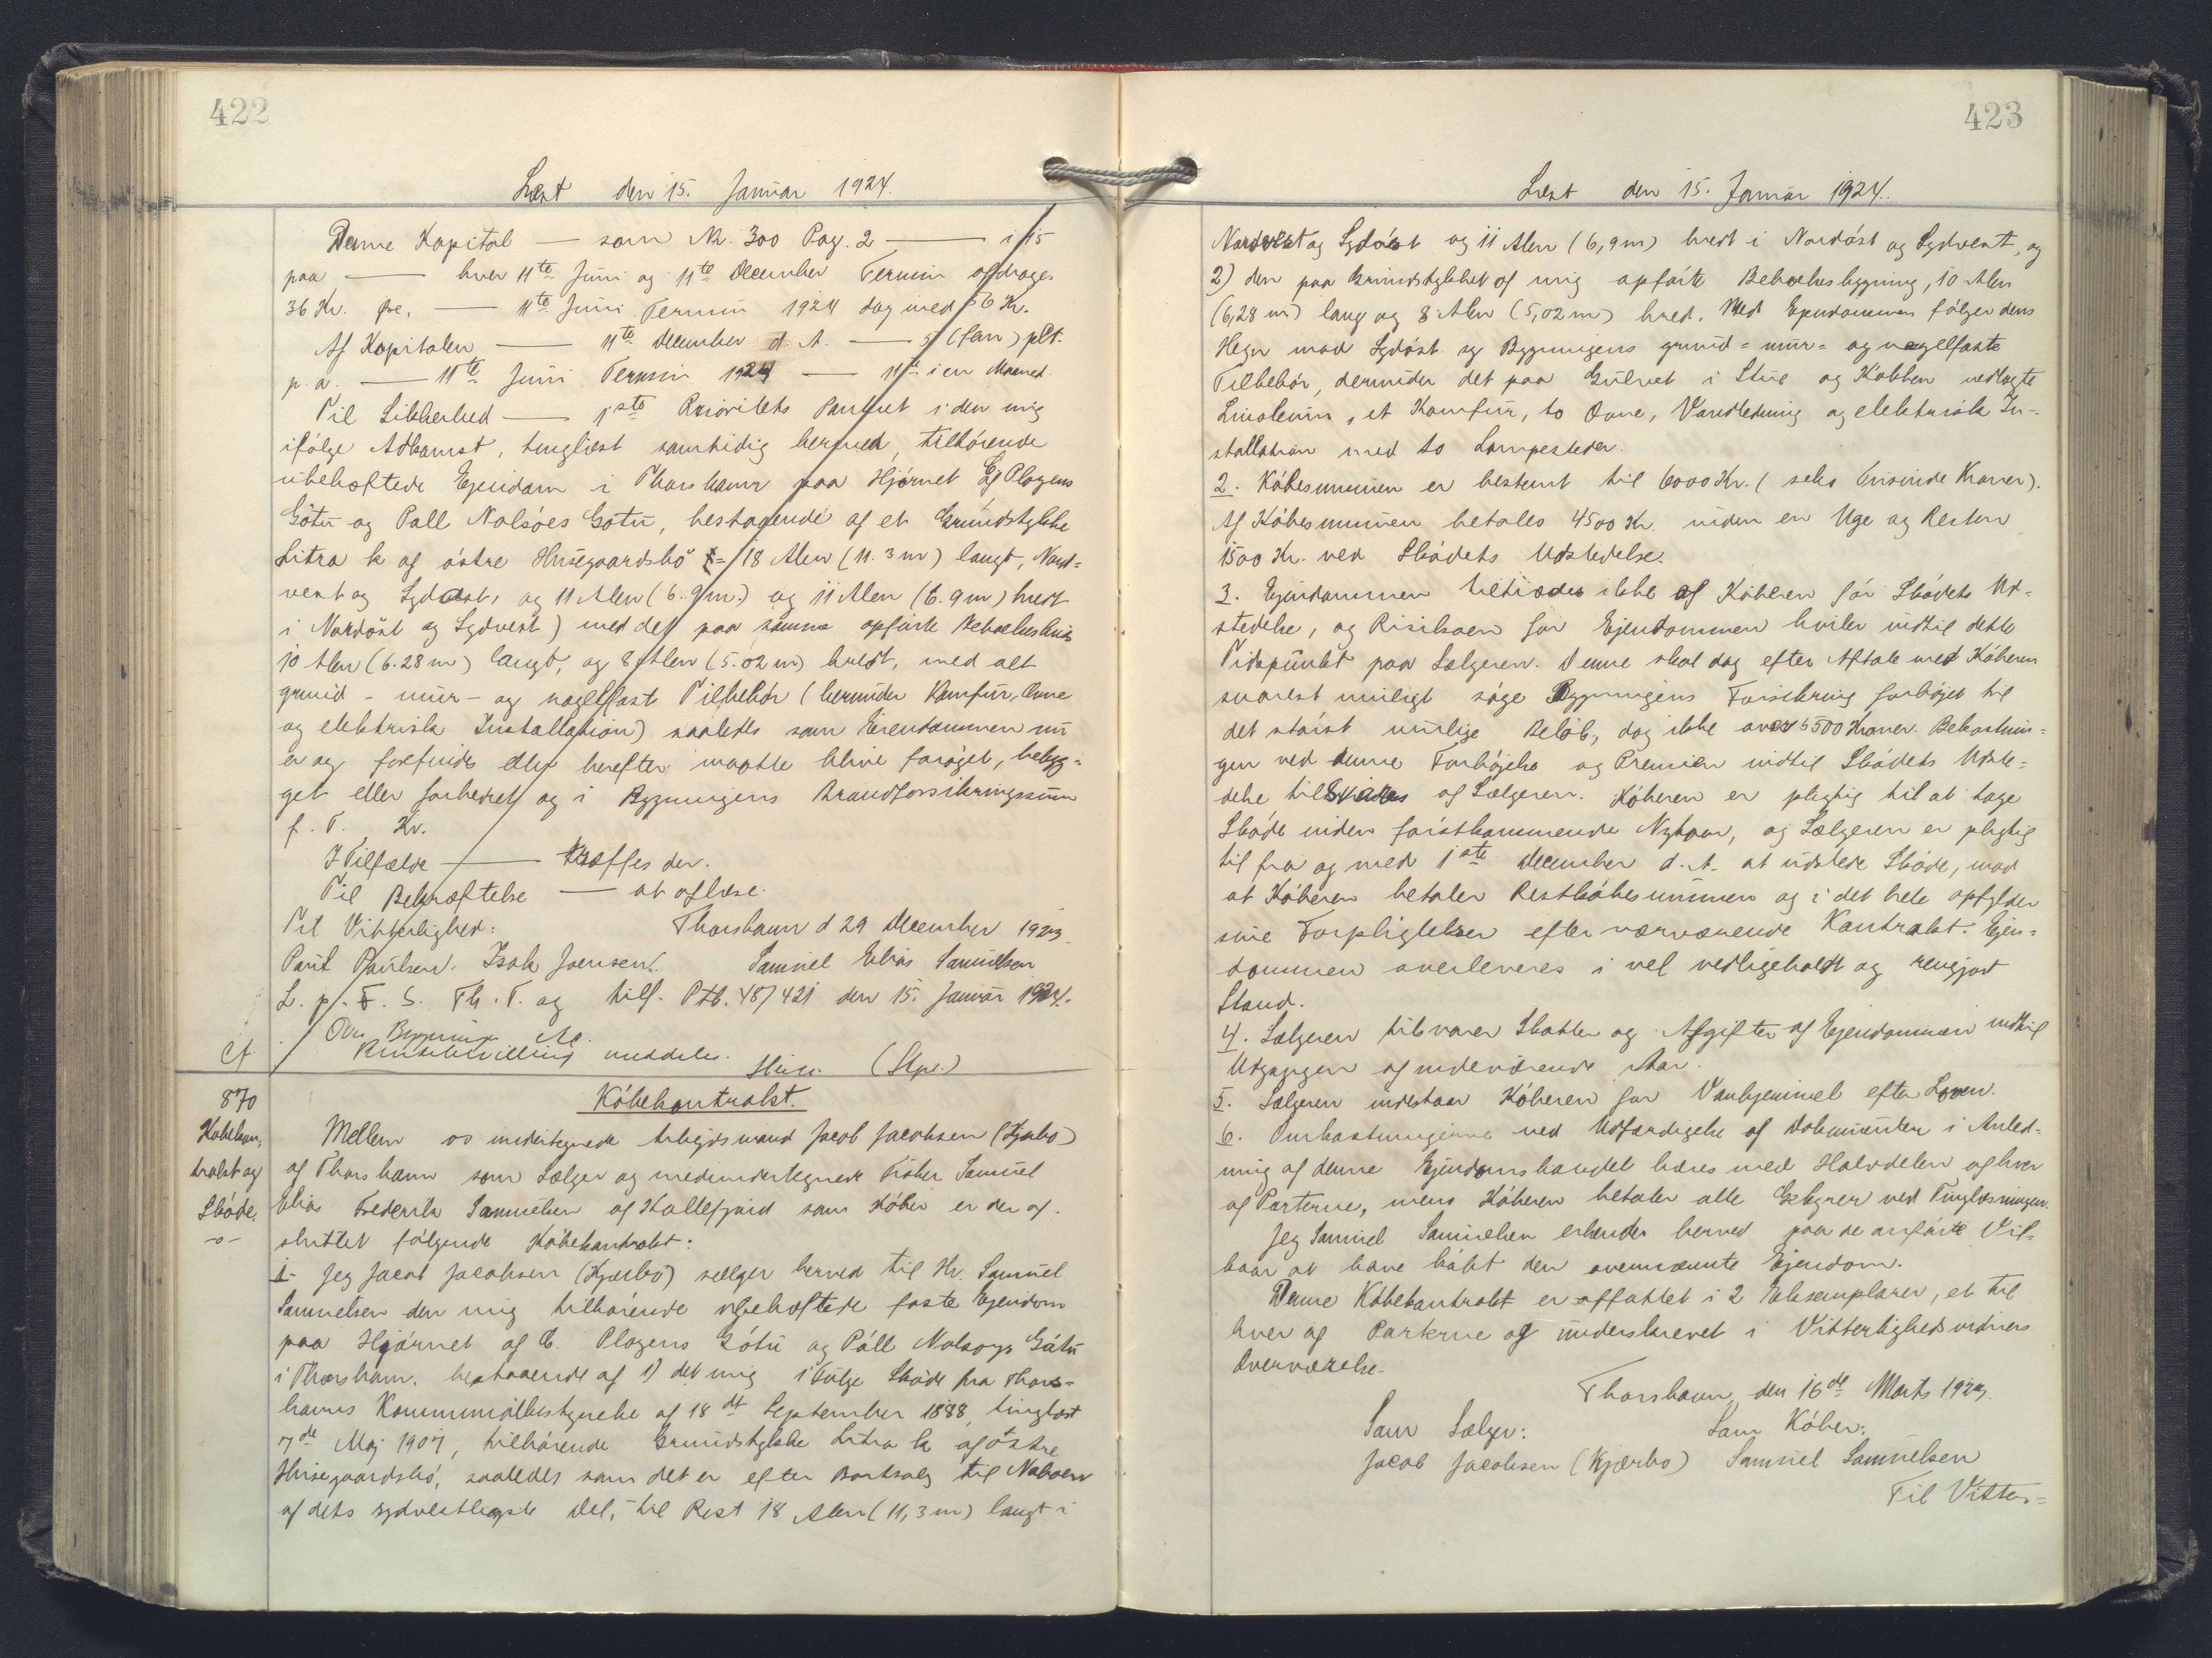 422
Læst den 15. Januar 1924.
Denne Kapital — som Nr. 300 Pag. 2 — i 15
paa — hver 11te Juni og 11te December Termin afdrages
36 Kr. Øre, — 11te Juni Termin 1924 dog med 56 Kr.
Af Kapitalen — 11te December d. A. — 5 (fem) pCt.
p. a. — 11te Juni Termin 1924 — 11te i en Maaned.
Til Sikkerhed — 1ste Prioritets Panteret i den mig
ifölge Adkomst, tinglæst samtidig hermed, tilhörende
ubehæftede Ejendom i Thorshavn paa Hjörnet af Plogens
Götu og Pall Nolsöes Götu, bestaaende af et Grundstykke
Litra k af östre Husegaardsbö 18 Alen (11.3 m) langt, Nord=
vest og Sydöst, og 11 Alen (6.9 m.) og 11 Alen (6.9 m) bredt
i Nordöst og Sydvest) med det paa samme opförte Beboelseshus
10 Alen (6.28 m) langt, og 8 Alen (5.02 m) bredt, med alt
grund - mur - og nagelfast Tilbehör (herunder Komfur, Ovne
og elektrisk Installation) saaledes som Ejendommen nu
er og forefindes eller herefter maatte blive forøget, bebyg=
get eller forbedret og i Bygningens Brandforsikringssum
f. T. Kr.
I Tilfælde — træffes der.
Til Bekræftelse — at aflæse.
Thorshavn d 29 December 1923
Til Vitterlighed:
Poul Paulsen. Isak Joensen. Samuel Elias Samuelsen
L. p. F. S. Th. T. og tilf. Ptb. 48/421 den 15. Januar 1924.
Om Bygning
meddeles.
(Stpl.)
Ct
870
Köbekon=
trakt og
Sköde.
-o-
Köbekontrakt.
Mellem os undertegnede Arbejdsmand Jacob Jacobsen (Kjærbo)
af Thorshavn som Sælger og medundertegnede Fisker Samuel
Elias Frederik Samuelsen af Kollefjord som Köber er der af=
sluttet fölgende Köbekontrakt:
1. Jeg Jacob Jacobsen (Kjærbo) sælger herved til Hr. Samuel
Samuelsen den mig tilhörende ubehæftede faste Ejendom
paa Hjörnet af C. Plogens Götu og Páll Nolsoys Götu
i Thorshavn, bestaaende af 1) det mig ifölge Sköde fra Thors=
havns Kommunalbestyrelse af 18 dt September 1888, tinglæst
7de Maj 1907, tilhörende Grundstykke Litra k af östre
Husegaardsbö, saaledes som det er efter Bortsalg til Naboen
af dets sydvestligste Del, til Rest 18 Alen (11,3 m) langt i
423
Læst den 15. Januar 1924.
Nordvest og Sydöst og 11 Alen (6,9 m) bredt i Nordöst og Sydvest, og
2) den paa Grundstykket af mig opförte Beboelsesbygning, 10 Alen
(6,28 m) lang og 8 Alen (5,02 m) bred. Med Ejendommen fölger dens
Hegn mod Sydöst og Bygningens grund= mur= og nagelfaste
Tilbehör, derunder det paa Gulvet i Stue og Köbben nedlagte
Linoleum, et Komfur, to Ovne, Vandledning og elektrisk In=
stallation med to Lampesteder.
2. Köbesummen er bestemt til 6000 Kr. (seks Tusinde Kroner).
Af Köbesummen betales 4500 Kr. inden en Uge og Resten
1500 Kr. ved Sködets Udstedelse.
3. Ejendommen tiltrædes ikke af Köberen för Sködets Ud=
stedelse, og Risikoen for Ejendommen hviler indtil dette
Tidspunkt paa Sælgeren. Denne skal dog efter Aftale med Köberen
snarest muligt söge Bygningens Forsikring forhöjet til
det störst mulige Belöb, dog ikke over 5500 Kroner. Bekostnin=
gen ved denne Forhöjelse og Præmien indtil Sködets Udste=
delse tilsvares af Sælgeren. Köberen er pligtig til at tage
Sköde inden förstkommende Nytaar, og Sælgeren er pligtig
til fra og med 1ste December d. A. at udstede Sköde, mod
at Köberen betaler Restköbesummen og i det hele opfylder
sine Forpligtelser efter nærværende Kontrakt. Ejen=
dommen overleveres i vel vedligeholdt og rengjort
Stand.
4. Sælgeren tilsvarer Skatter og Afgifter af Ejendommen indtil
Udgangen af indeværende Aar.
5. Sælgeren indestaar Köberen for Vanhjemmel efter Loven.
6. Omkostningerne ved Udfærdigelse af Dokumenter i Anled=
ning af denne Ejendomshandel bæres med Halvdelen af hver
af Parterne, mens Köberen betaler alle Gebyrer ved Tinglæsningen.
Jeg Samuel Samuelsen erkender herved paa de anförte Vil=
kaar at have köbt den ovennævnte Ejendom.
Denne Köbekontrakt er affattet i 2 Eksemplarer, et til
hver af Parterne og underskrevet i Vitterlighedsvidners
Overværelse.
Thorshavn, den 16de Marts 1923.
Som Sælger: Som Köber:
Jacob Jacobsen (Kjærbo) Samuel Samuelsen
Til Vitter=